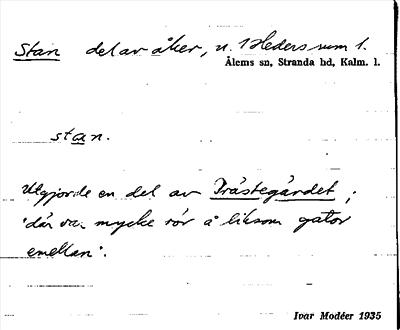 Stan del av åker, n. Hedersrum 1.
Ålems sn, Stranda hd, Kalm. l.
stan.
Utgjorde en del av Prästegärdet;
"där va mycke rör å liksom gator
emellan".
Ivar Modéer 1935